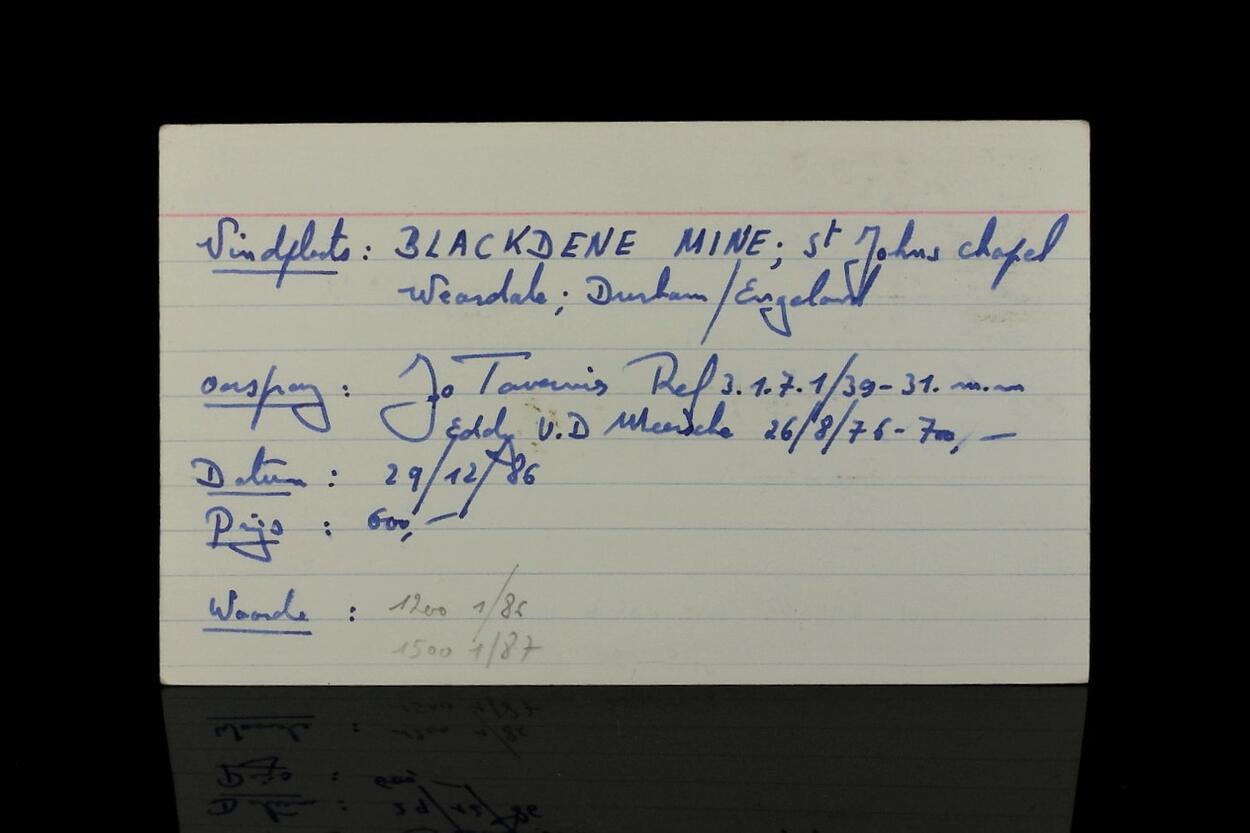 Vindplaats : BLACKDENE MINE; St Johns chapel
Weardale; Durham/Engeland
oorsprong : Jo Tavernier Ref 3.1.7.1/39-31. m.m
Eddy V.D Meersche 26/8/76- 700,-
Datum : 29/12/86
Prijs : 600,-
Waarde : 1200 1/86
1500 1/87